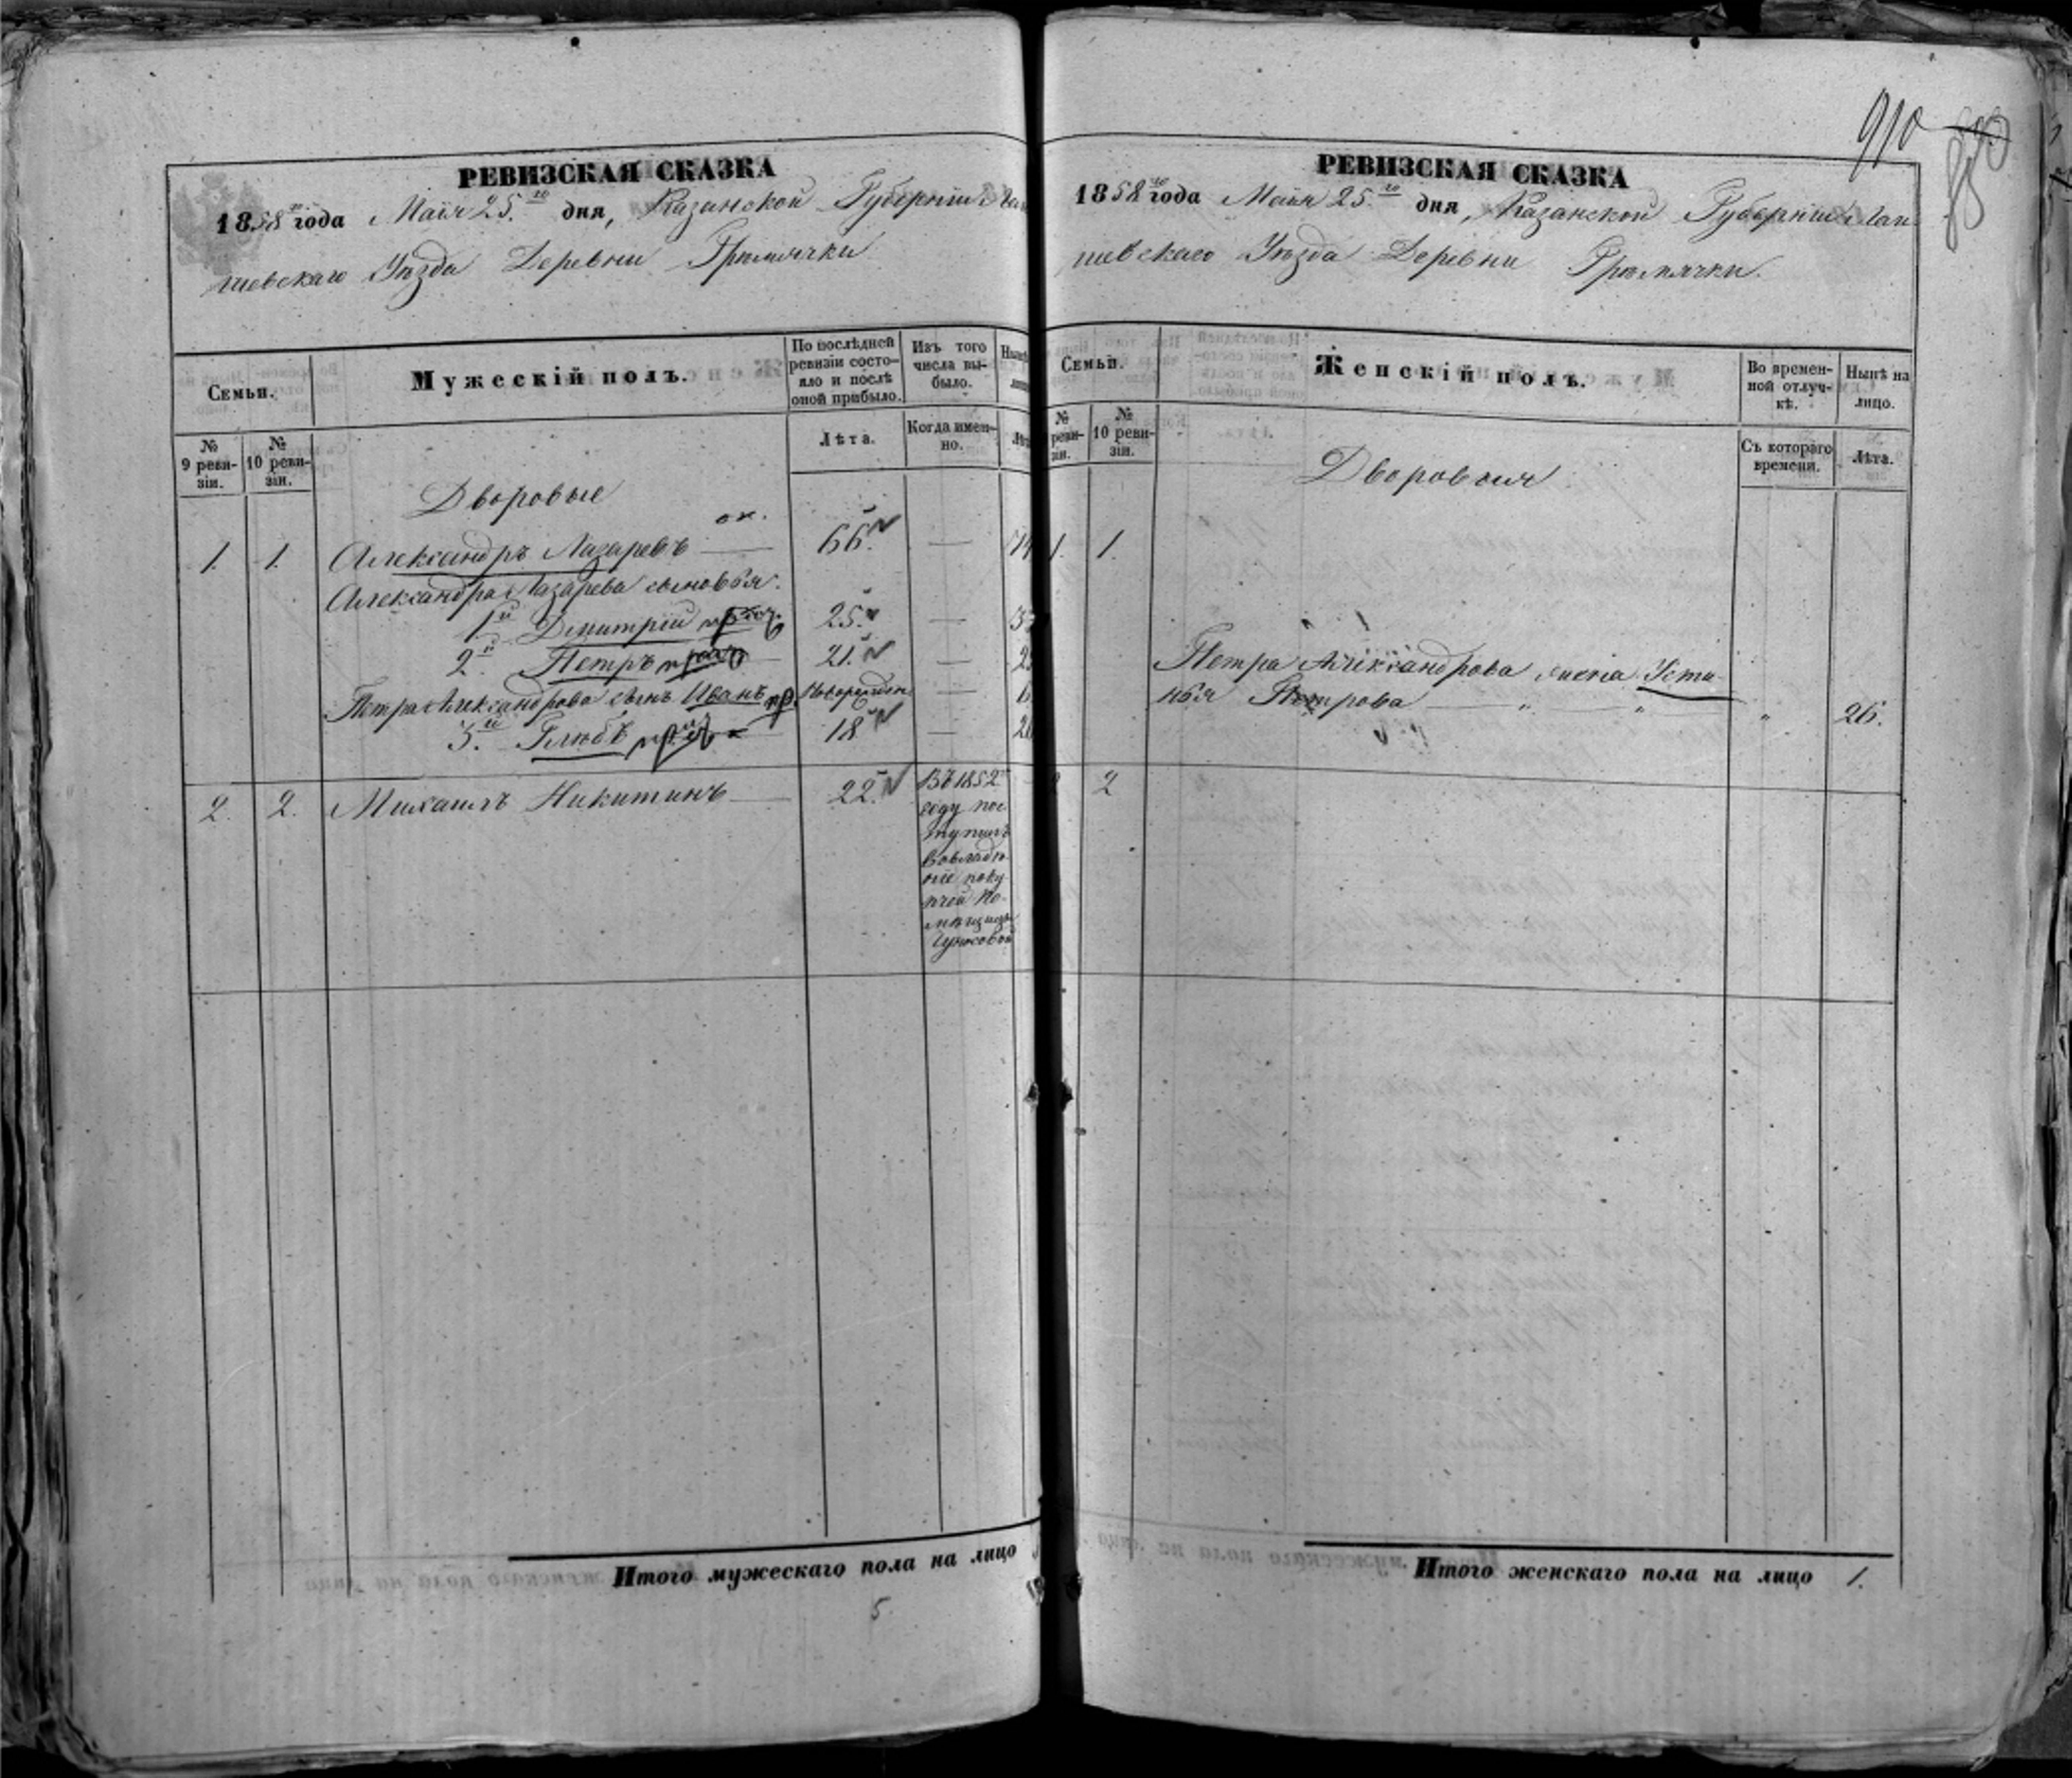 910
РЕВИЗСКАЯ СКАЗКА
1858го года Маія 25.го дня, Казанской Губерніи Лаи
шевскаго Уѣзда Деревни Грѣмячки
Семьи.
Мужескій полъ.
По послѣдней ревизіи состояло и послѣ оной прибыло.
Изъ того числа выбыло.
№ 9 ревизіи.
№ 10 ревизіи.
Лѣта.
Когда именно.
Дворовые
1. 1. Александръ Лазаревъ 66.
Александра Лазарева сыновья.
1й Дмитрій 25.
2.й Петръ 21.
Петра Александрова сынъ Иванъ Новорожден
3.й Глѣбъ 18
2. 2. Михаилъ Никитинъ 22.
Въ 1852
году пос
тупилъ
вовладѣ
ніе поку
пчей По
мѣщицы
Итого мужескаго пола на лицо
5
РЕВИЗСКАЯ СКАЗКА
1858го года Маія 25го дня, Казанской Губерніи Лаи
шевскаго Уѣзда Деревни Грѣмячки.
Семьи.
Женскій полъ.
Во временной отлучкѣ.
Нынѣ на лицо.
№ ревизіи.
№ 10 ревизіи.
Съ котораго времени.
Лѣта.
Дворовыя
1. 1.
Петра Александрова жена Усти
нья Петрова " " " 26.
2
Итого женскаго пола на лицо 1.